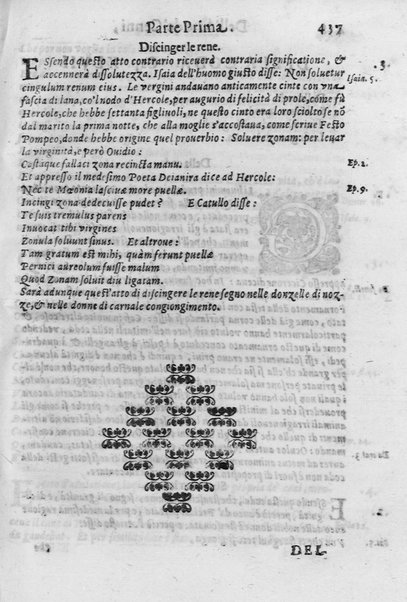 Parte Prima. 437
Discinger le rene.
ESsendo questo atto contrario riceverà contraria significatione, &
accennerà dissolutezza. Isaia dell'huomo giusto disse: Non soluetur
cingulum renum eius. Le vergini andauano anticamente cinte con vna
fascia di lana, co'l nodo d'Hercole, per augurio di felicità di prole, come fù
Hercole, che hebbe settanta figliuoli, ne questo cinto era loro sciolto se nō
dal marito la prima notte, che alla moglie s'accostaua, come scriue Festo
Pompeo, donde hebbe origine quel prouerbio: Soluere zonam: per leuar
la virginità, e però Ouidio:
Castaque fallaci zona recincta manu.
Et appresso il medesimo Poeta Deianira dice ad Hercole:
Nec te Mæonia lasciuæ more puellæ
Incingi zona dedecuisse pudet? E Catullo disse:
Te suis tremulus parens
Inuocat tibi virgines
Zonula soluunt sinus. Et altroue:
Tam gratum est mihi, quàm ferunt puellæ
Pernici aureolum fuisse malum
Quod Zonam soluit diu ligatam.
Sarà adunque quest'atto di discingere le rene segno nelle donzelle di noz-
ze, & nelle donne di carnale congiongimento.
3.
Isaia. 5.
Ep. 2.
Ep. 9.
DEL